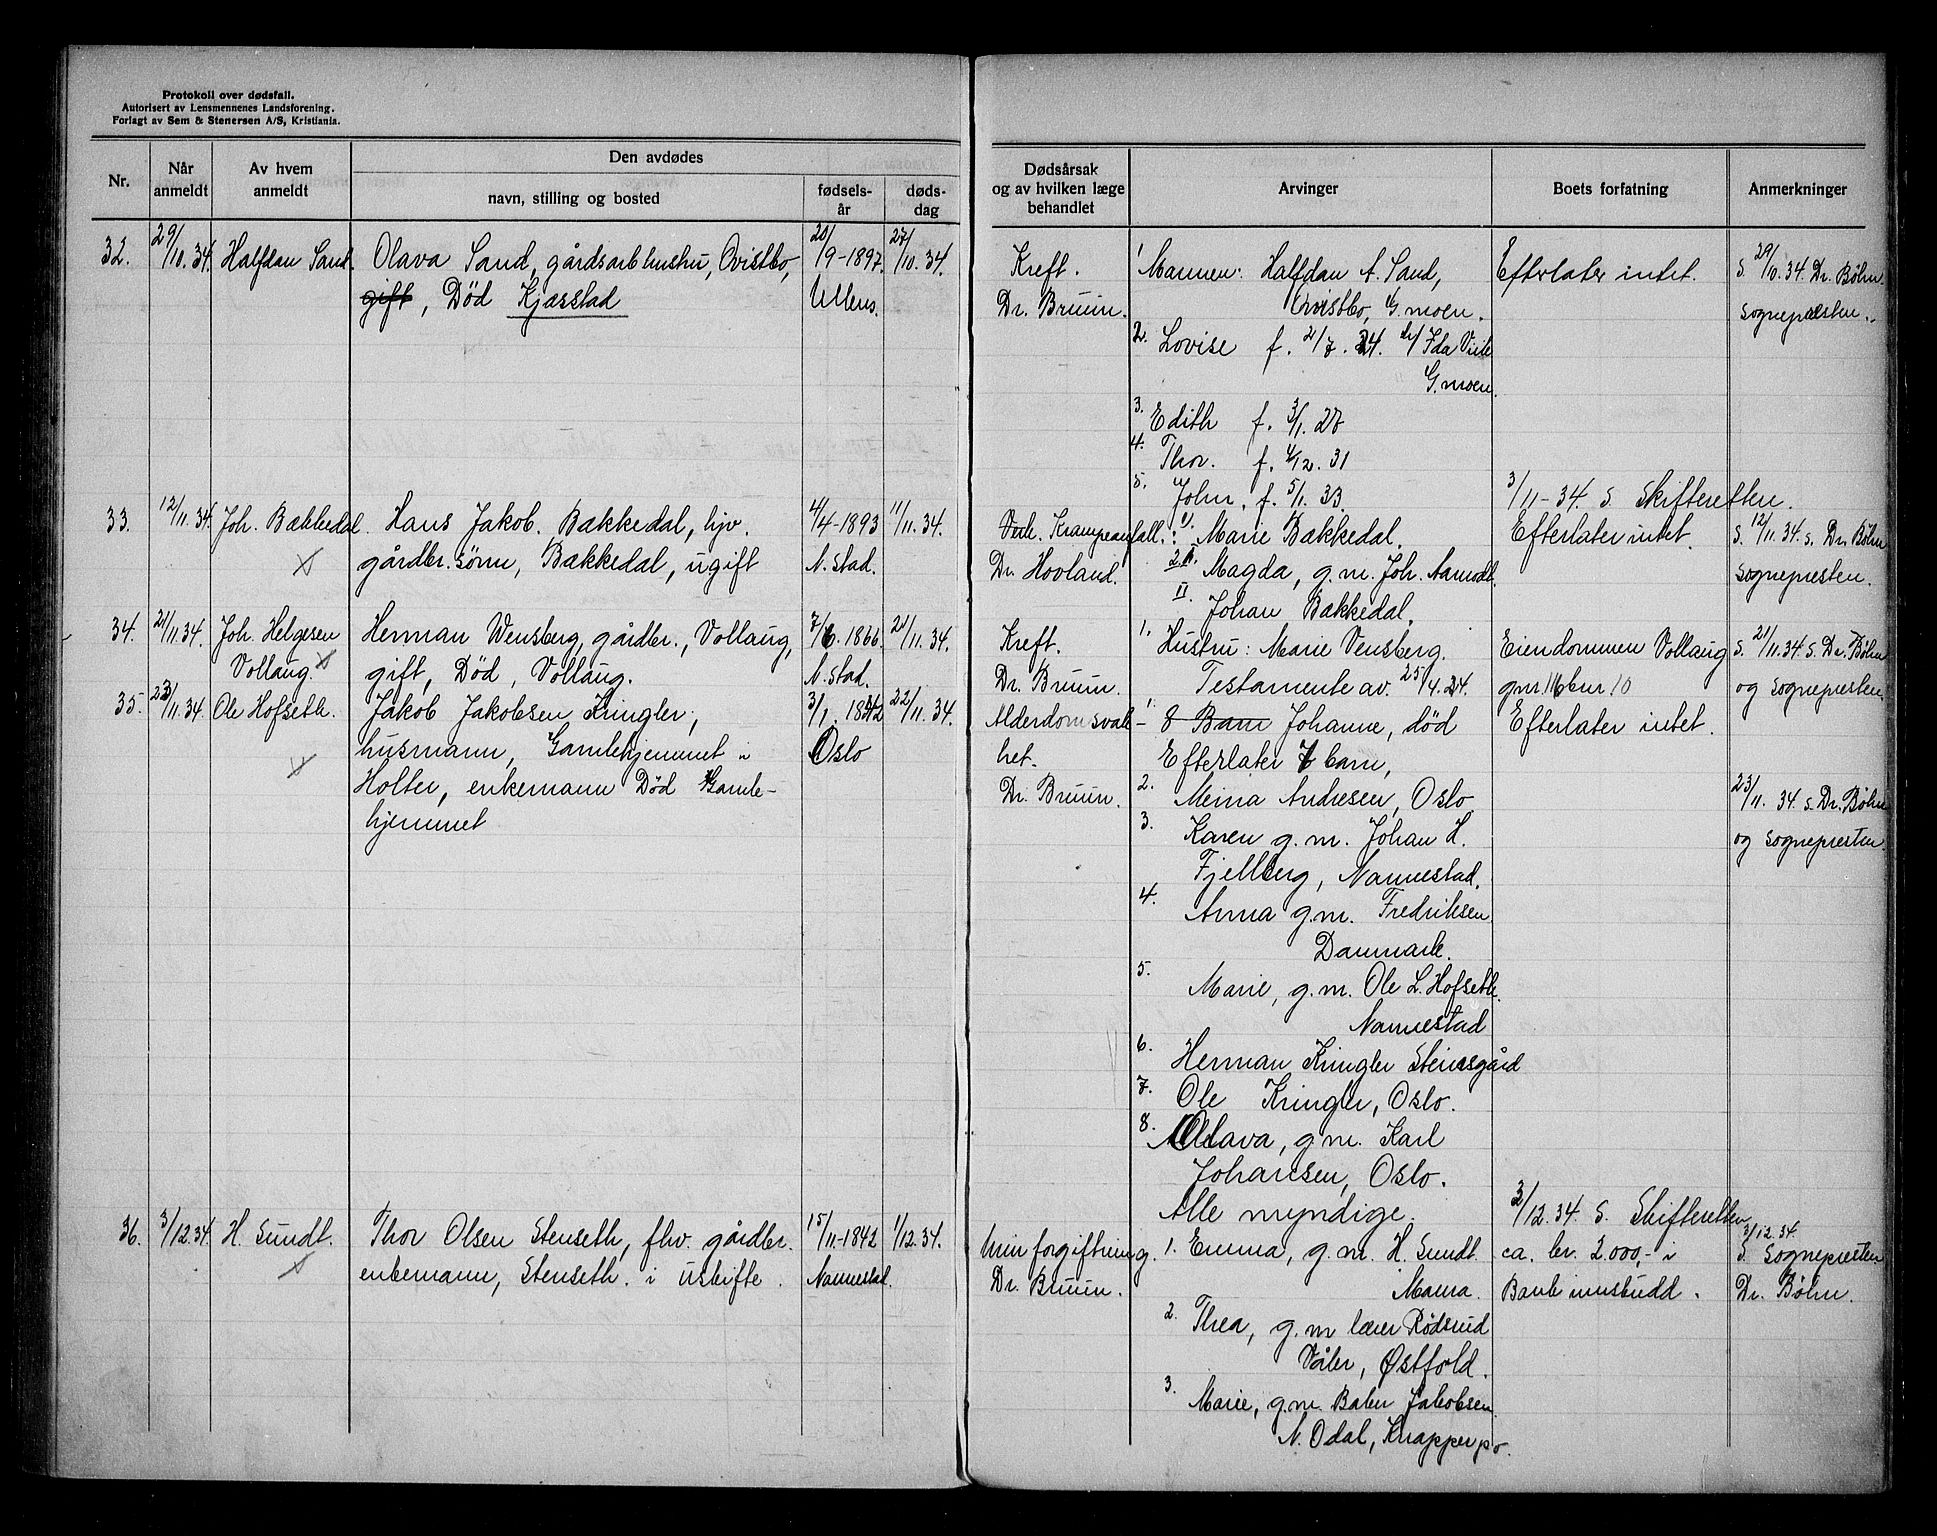 Protokoll over dødsfall.
Autorisert av Lensmennenes Landsforening.
Forlagt av Sem & Stenersen A/S, Kristiania.
Nr.
Når anmeldt
Av hvem anmeldt
Den avdødes
navn, stilling og bosted
fødsels-
år
døds-
dag
Dødsårsak
og av hvilken læge
behandlet
Arvinger
Boets forfatning
Anmerkninger
32. 29/10.34. Halfdan Sand. Olava Sand, gårdsarb hustru, Qvistbo, 20/9-1897. 27/10.34.
gift, Død Kjæsstad Ullens.
Kreft. 1 Mannen: Halfdan A. Sand, Efterlater intet. S. 29/10.34. Dr. Bøhn.
Dr. Bruun. Qvistbo, G.moen. sognepresten.
2. Lovise f. 2/7.24. Ida
G.moen.
3. Edith f. 3/1.27
4. Thor. f. 4/12.31
5. John. f. 5/11.33. 3/11-34 S Skifteretten.
33. 12/11.34. Joh. Bækkedal. Hans Jakob. Bækkedal, hjv. 4/4-1893 11/11.34.
gårdbr. sønn, Bækkedal, ugift N.stad.
Krampeanfall. 1. Marie Bækkedal. Efterlater intet. S. 12/11.34. S. Dr. Bøhn
Dr. Hovland. 2. I. Magda, g.m. Joh. Aamodt. sognepresten.
II. Johan Bækkedal.
34. 21/11.34. Joh. Helgesen Herman Wensberg, gårdbr., Vollaug, 7/6.1866. 21/11.34.
Vollaug. gift, Død, Vollaug. N.stad.
Kreft. 1. Hustru: Marie Vensberg. Eiendommen Vollaug S. 21/11.34. S. Dr. Bøhn
Dr. Bruun. Testamente av 25/4.24. gnr. 116 bnr. 10 og sognepresten.
35. 23/11.34. Ole Hofseth. Jakob Jakobsen Kringler, 3/1. 1842 22/11.34.
husmann, Gamlehjemmet i Oslo
Holter, enkemann Død Gamle-
hjemmet
Alderdomsvak- 1. 8 Barn Johanne, død Efterlater intet.
het. Efterlater 7 barn,
Dr. Bruun. 2. Meina Andresen, Oslo 23/11.34 S. Dr. Bøhn
3. Karen g.m. Johan H. og sognepresten.
Fjellberg, Nannestad.
4. Anna g.m. Fredriksen
Danmark.
5. Marie, g.m. Ole L. Hofseth.
Nannestad
6. Herman Kringler Stensgård
7. Ole Kringler, Oslo.
8. Olava, g.m. Karl
Johansen, Oslo.
Alle myndige. 3/12.34 S. Skifteretten
36. 3/12.34. H. Sundt. Thor Olsen Stenseth, fhv. gårdbr. 15/11-1842 1/12.34.
enkemann, Stenseth. i uskifte. Nannestad.
Urinforgiftning. 1. Emma, g.m. H. Sundt. ca. kr. 2.000,- i 3/12.34. S. Sognepresten
Dr. Bruun. Maura. Bankinnskudd. Dr. Bøhn.
2. Thea, g.m lærer Rødsrud
Våler, Østfold.
3. Marie, g.m. Baker Jakobsen.
N. Odal, Knapper po.